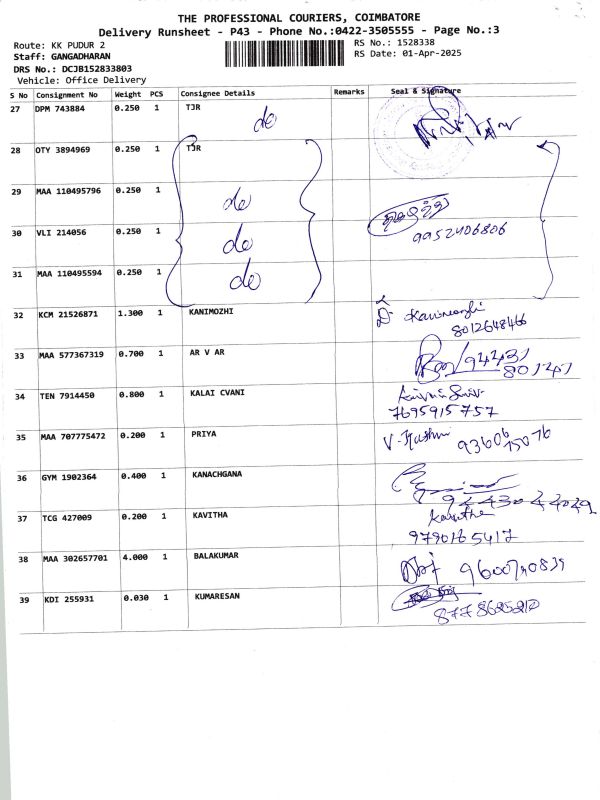 THE PROFESSIONAL COURIERS, COIMBATORE
Delivery Runsheet - P43 - Phone No.:0422-3505555 - Page No.:3
Route: KK PUDUR 2 RS No.: 1528338
Staff: GANGADHARAN RS Date: 01-Apr-2025
DRS No.: DCJB152833803
Vehicle: Office Delivery
S No Consignment No Weight PCS Consignee Details Remarks Seal & Signature
27 DPM 743884 0.250 1 TJR do
28 OTY 3894969 0.250 1 TJR
29 MAA 110495796 0.250 1 do
30 VLI 214056 0.250 1 do 9952406806
31 MAA 110495594 0.250 1 do
32 KCM 21526871 1.300 1 KANIMOZHI D. Kanimozhi
8012648466
33 MAA 577367319 0.700 1 AR V AR 94431
801241
34 TEN 7914450 0.800 1 KALAI CVANI
7695915757
35 MAA 707775472 0.200 1 PRIYA 93606
75076
36 GYM 1902364 0.400 1 KANACHGANA
37 TCG 427009 0.200 1 KAVITHA Kavitha
9790165417
38 MAA 302657701 4.000 1 BALAKUMAR
39 KDI 255931 0.030 1 KUMARESAN